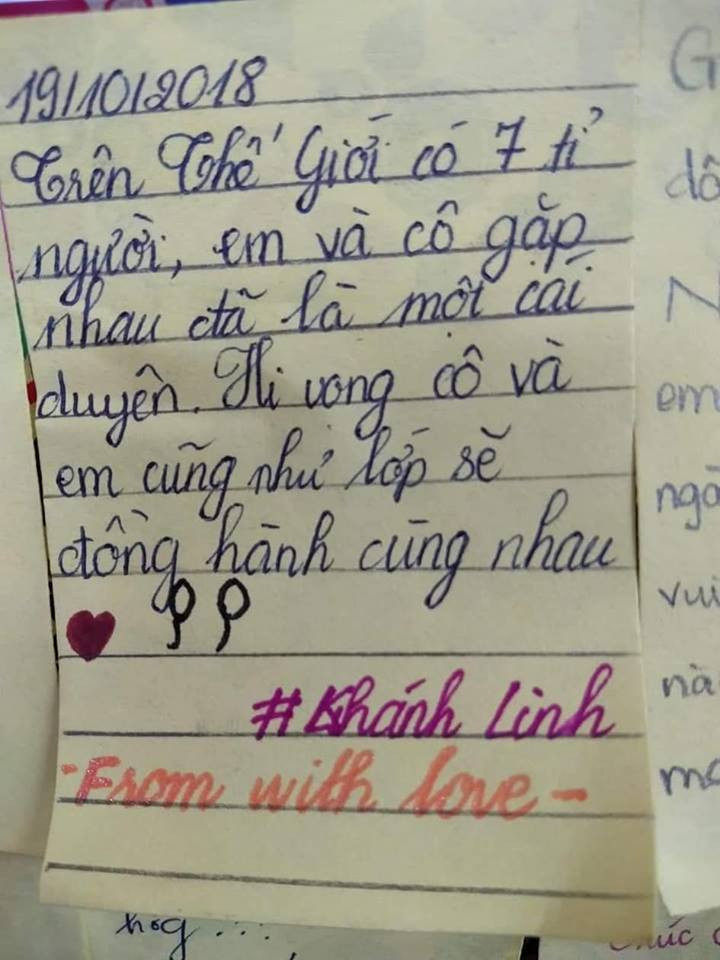 19/10/2018
Trên Thế Giới có 7 tỉ
người, em và cô gặp
nhau đã là một cái
duyên. Hi vong cô và
em cũng như lớp sẽ
đồng hành cùng nhau
#Khánh Linh
-From with love-
G
dô
N
em
ngà
vui
nà
mo
hog ...